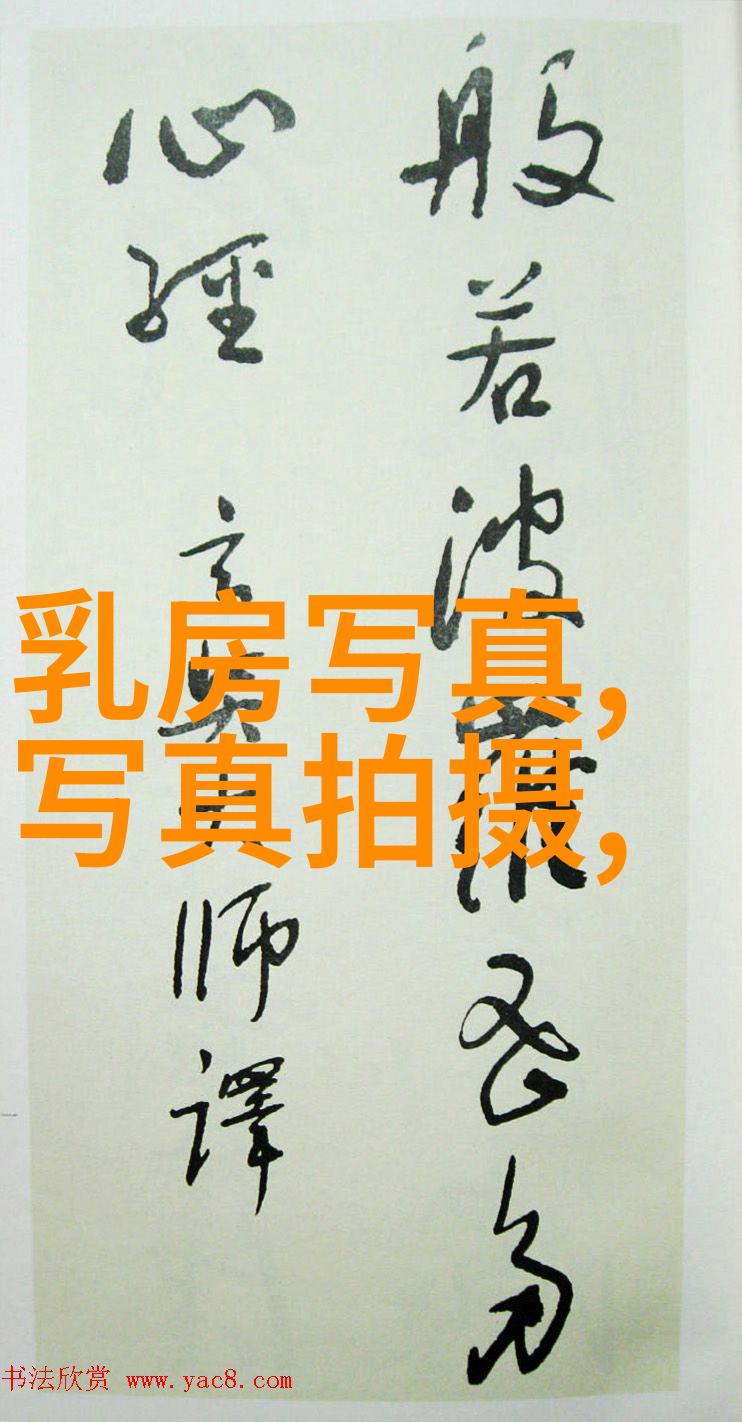 般若波羅蜜多
心經 玄奘大師譯
乳房写真,
写真拍摄,
书法欣赏 www.yac8.com